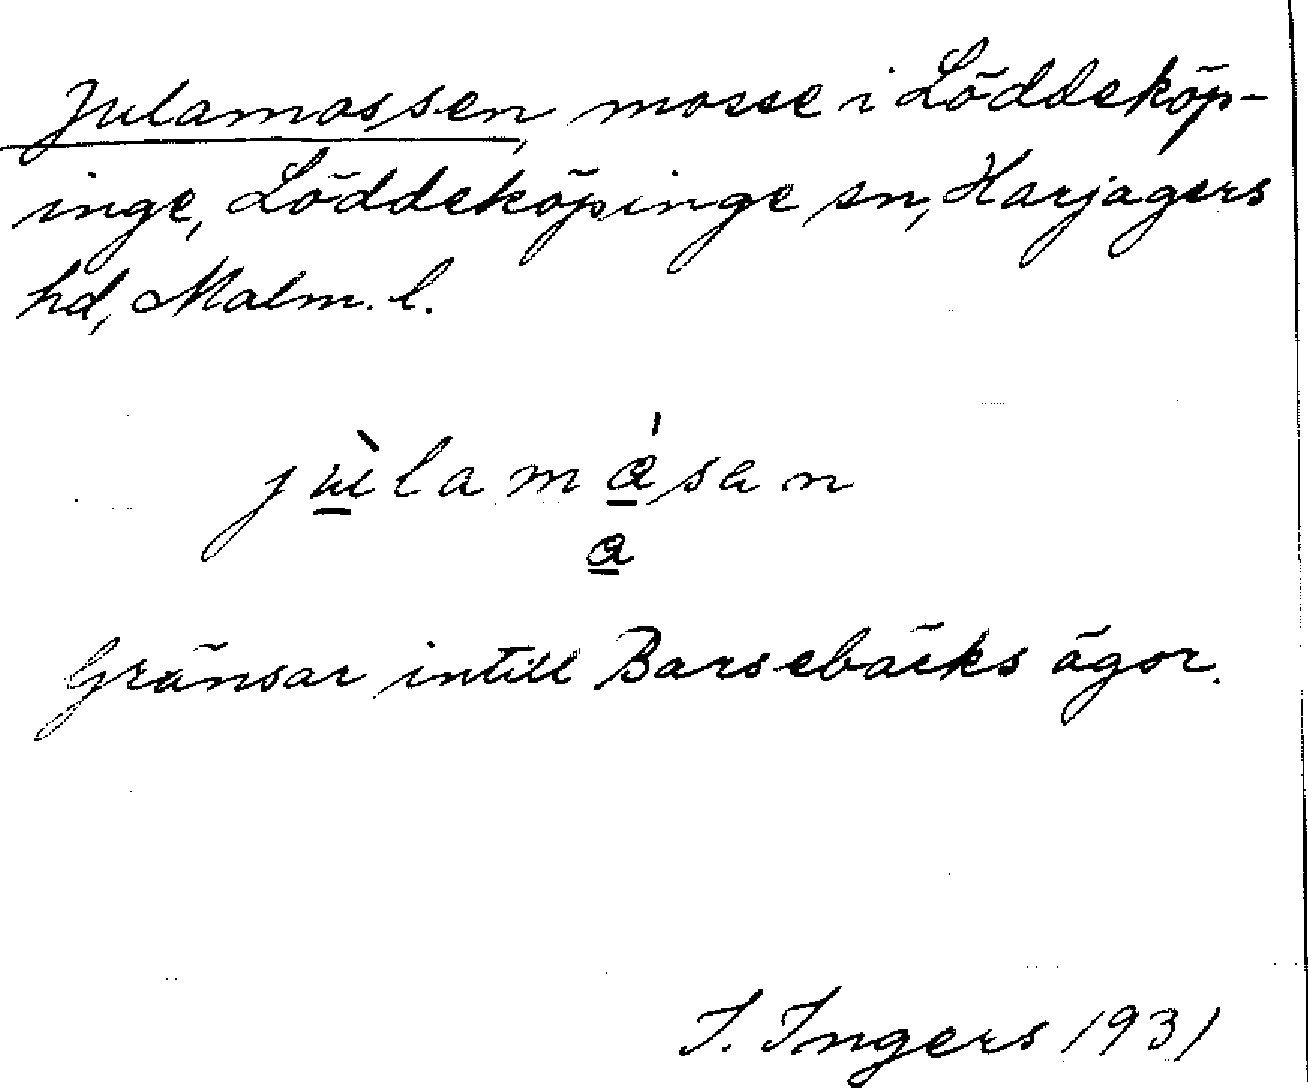 Julamossen, mosse i Löddeköp-
inge, Löddeköpinge sn, Harjagers
hd, Malm. l.
jùlamása n
a
Gränsar intill Barsebäcks ägor.
I. Ingers 1931